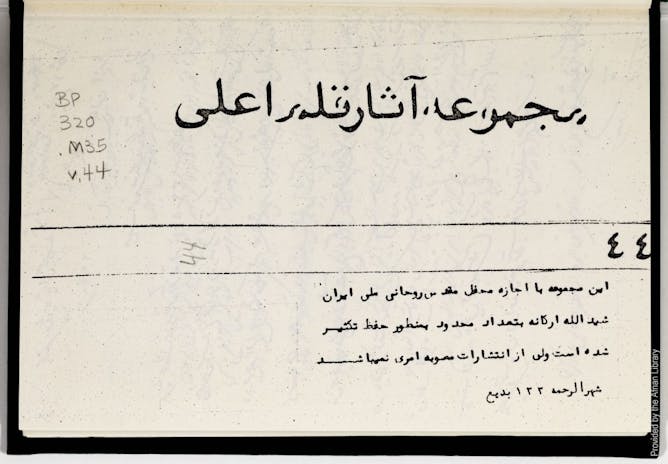 مجموعه آثار قلم اعلی
BP
320
.M35
v.44
44
٤٤
این مجموعه با اجازه محفل مقدس روحانی ملی ایران
شیدالله ارکانه بتعداد محدود بمنظور حفظ تکثیر
شده است ولی از انتشارات مصوبه امری نمیباشد
شهرالرحمه ۱۳۳ بدیع
Provided by the Afnan Library